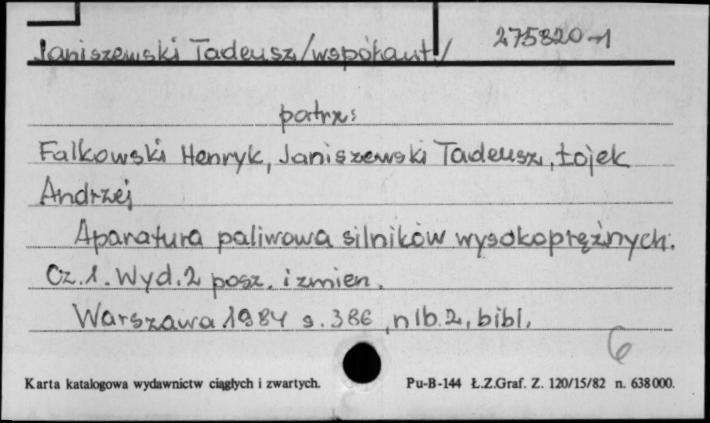 Janiszewski Tadeusz /współaut./ 275820-1
patrz:
Falkowski Henryk, Janiszewski Tadeusz, Łojek
Andrzej
Aparatura paliwowa silników wysokoprężnych.
Cz. 1. Wyd. 2 posz. i zmien.
Warszawa 1984 s. 386, nlb. 2, bibl.
6
Karta katalogowa wydawnictw ciągłych i zwartych. Pu-B-144 Ł.Z.Graf. Z. 120/15/82 n. 638000.